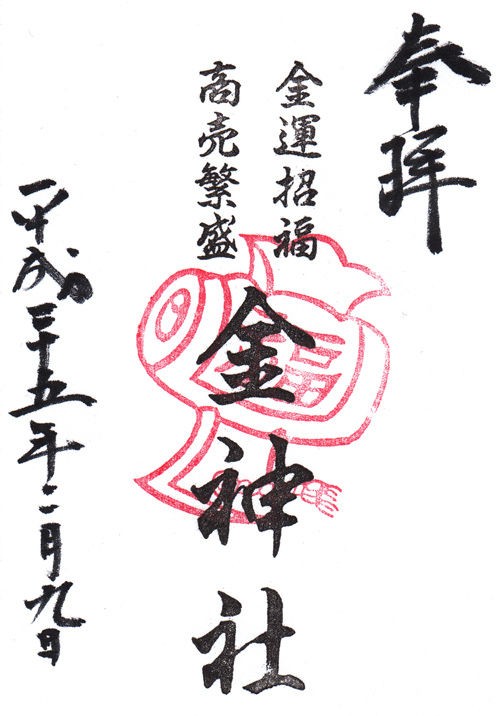 奉拝
金運招福
商売繁盛
福
金神社
平成二十五年二月九日